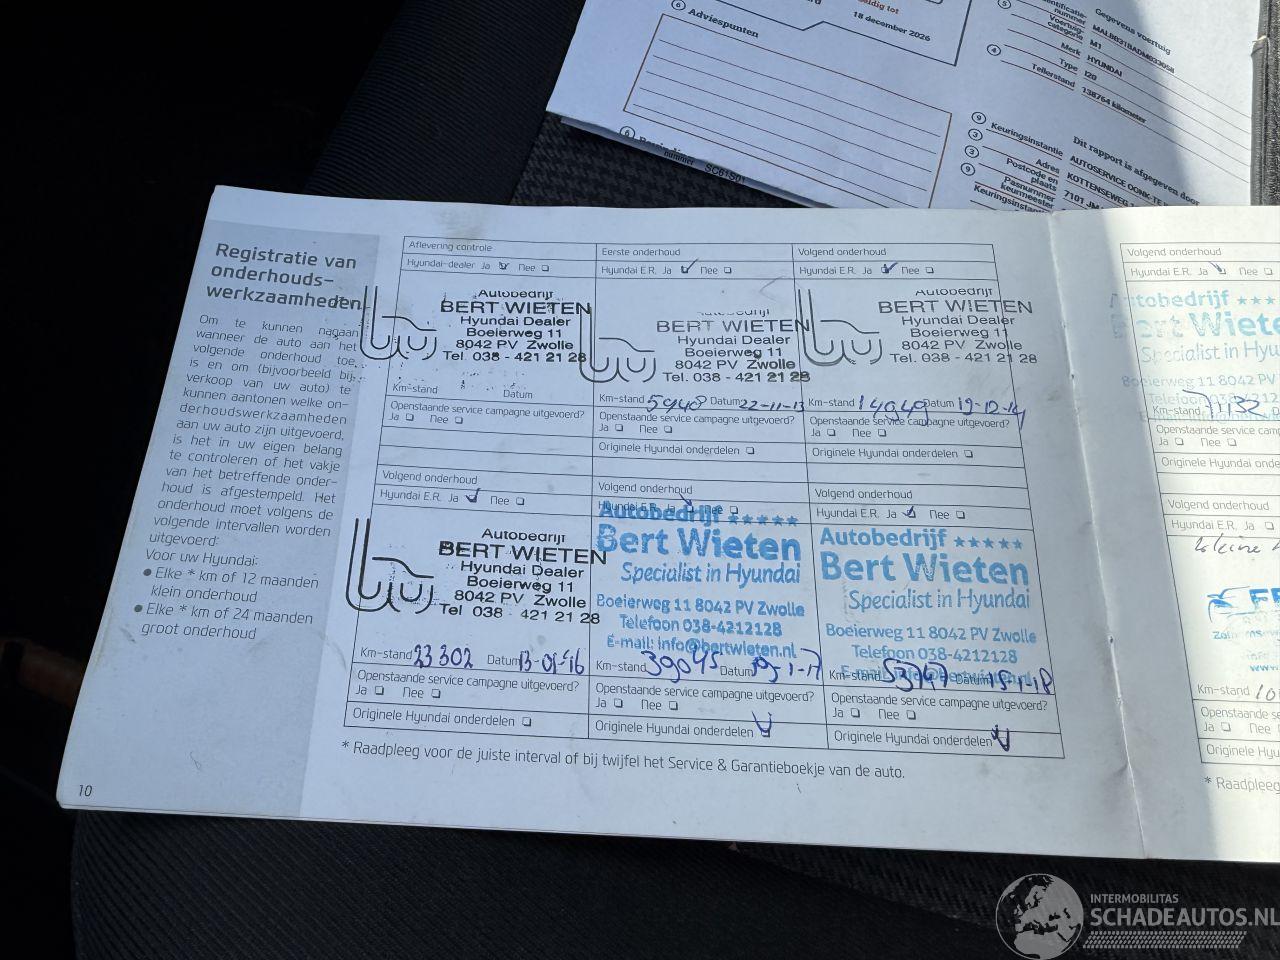 ldig tot
18 december 2026
6 Adviespunten
Gegevens voertuig
5
nummer
Voertuig-
categorie M1
Merk HYUNDAI
4 Type I20
Tellerstand 138764 kilometer
Dit rapport is afgegeven door
9 Keuringsinstantie AUTOSERVICE OONK-TE
3 Adres KOTTENSEWEG
3 Postcode en
plaats 7101 JM
9 Pasnummer
keurmeester
Keuringsinstan
6
nummer SC61S01
Registratie van
onderhouds-
werkzaamheden
Om te kunnen nagaan
wanneer de auto aan het
volgende onderhoud toe
is en om (bijvoorbeeld bij
verkoop van uw auto) te
kunnen aantonen welke on-
derhoudswerkzaamheden
aan uw auto zijn uitgevoerd,
is het in uw eigen belang
te controleren of het vakje
van het betreffende onder-
houd is afgestempeld. Het
onderhoud moet volgens de
volgende intervallen worden
uitgevoerd:
Voor uw Hyundai:
● Elke * km of 12 maanden
klein onderhoud
● Elke * km of 24 maanden
groot onderhoud
10
Aflevering controle
Hyundai-dealer Ja Nee
Autobedrijf
BERT WIETEN
Hyundai Dealer
Boeierweg 11
8042 PV Zwolle
Tel. 038 - 421 21 28
Km-stand Datum
Openstaande service campagne uitgevoerd?
Ja Nee
Eerste onderhoud
Hyundai E.R. Ja Nee
BERT WIETEN
Hyundai Dealer
Boeierweg 11
8042 PV Zwolle
Tel. 038 - 421 21 28
Km-stand 5948 Datum 22-11-13
Openstaande service campagne uitgevoerd?
Ja Nee
Originele Hyundai onderdelen
Volgend onderhoud
Hyundai E.R. Ja Nee
Autobedrijf
BERT WIETEN
Hyundai Dealer
Boeierweg 11
8042 PV Zwolle
Tel. 038 - 421 21 28
Km-stand 14949 Datum 19-12-14
Openstaande service campagne uitgevoerd?
Ja Nee
Originele Hyundai onderdelen
Volgend onderhoud
Hyundai E.R. Ja Nee
Autobedrijf
BERT WIETEN
Hyundai Dealer
Boeierweg 11
8042 PV Zwolle
Tel 038 - 421 21 28
Km-stand 23302 Datum 13-01-16
Openstaande service campagne uitgevoerd?
Ja Nee
Originele Hyundai onderdelen
Volgend onderhoud
Hyundai E.R. Ja Nee
Autobedrijf ★★★★★
Bert Wieten
Specialist in Hyundai
Boeierweg 11 8042 PV Zwolle
Telefoon 038-4212128
E-mail: info@bertwieten.nl
Km-stand 39045 Datum
Openstaande service campagne uitgevoerd?
Ja Nee
Originele Hyundai onderdelen
Volgend onderhoud
Hyundai E.R. Ja Nee
Autobedrijf ★★★★★
Bert Wieten
Specialist in Hyundai
Boeierweg 11 8042 PV Zwolle
Telefoon 038-4212128
Km-stand 53747 Datum 15-1-18
Openstaande service campagne uitgevoerd?
Ja Nee
Originele Hyundai onderdelen
* Raadpleeg voor de juiste interval of bij twijfel het Service & Garantieboekje van de auto.
Volgend onderhoud
Hyundai E.R. Ja Nee
Autobedrijf ★★★
Bert Wiete
Specialist in Hyu
Boeierweg 11 8042 PV
Telefoon 038
Km-stand 71132
Openstaande service camp
Ja Nee
Originele Hyundai
Volgend onderhoud
Hyundai E.R. Ja
www.
Km-stand 10
Openstaande service
Ja Nee
Originele Hyu
* Raadpleeg
INTERMOBILITAS
SCHADEAUTOS.NL